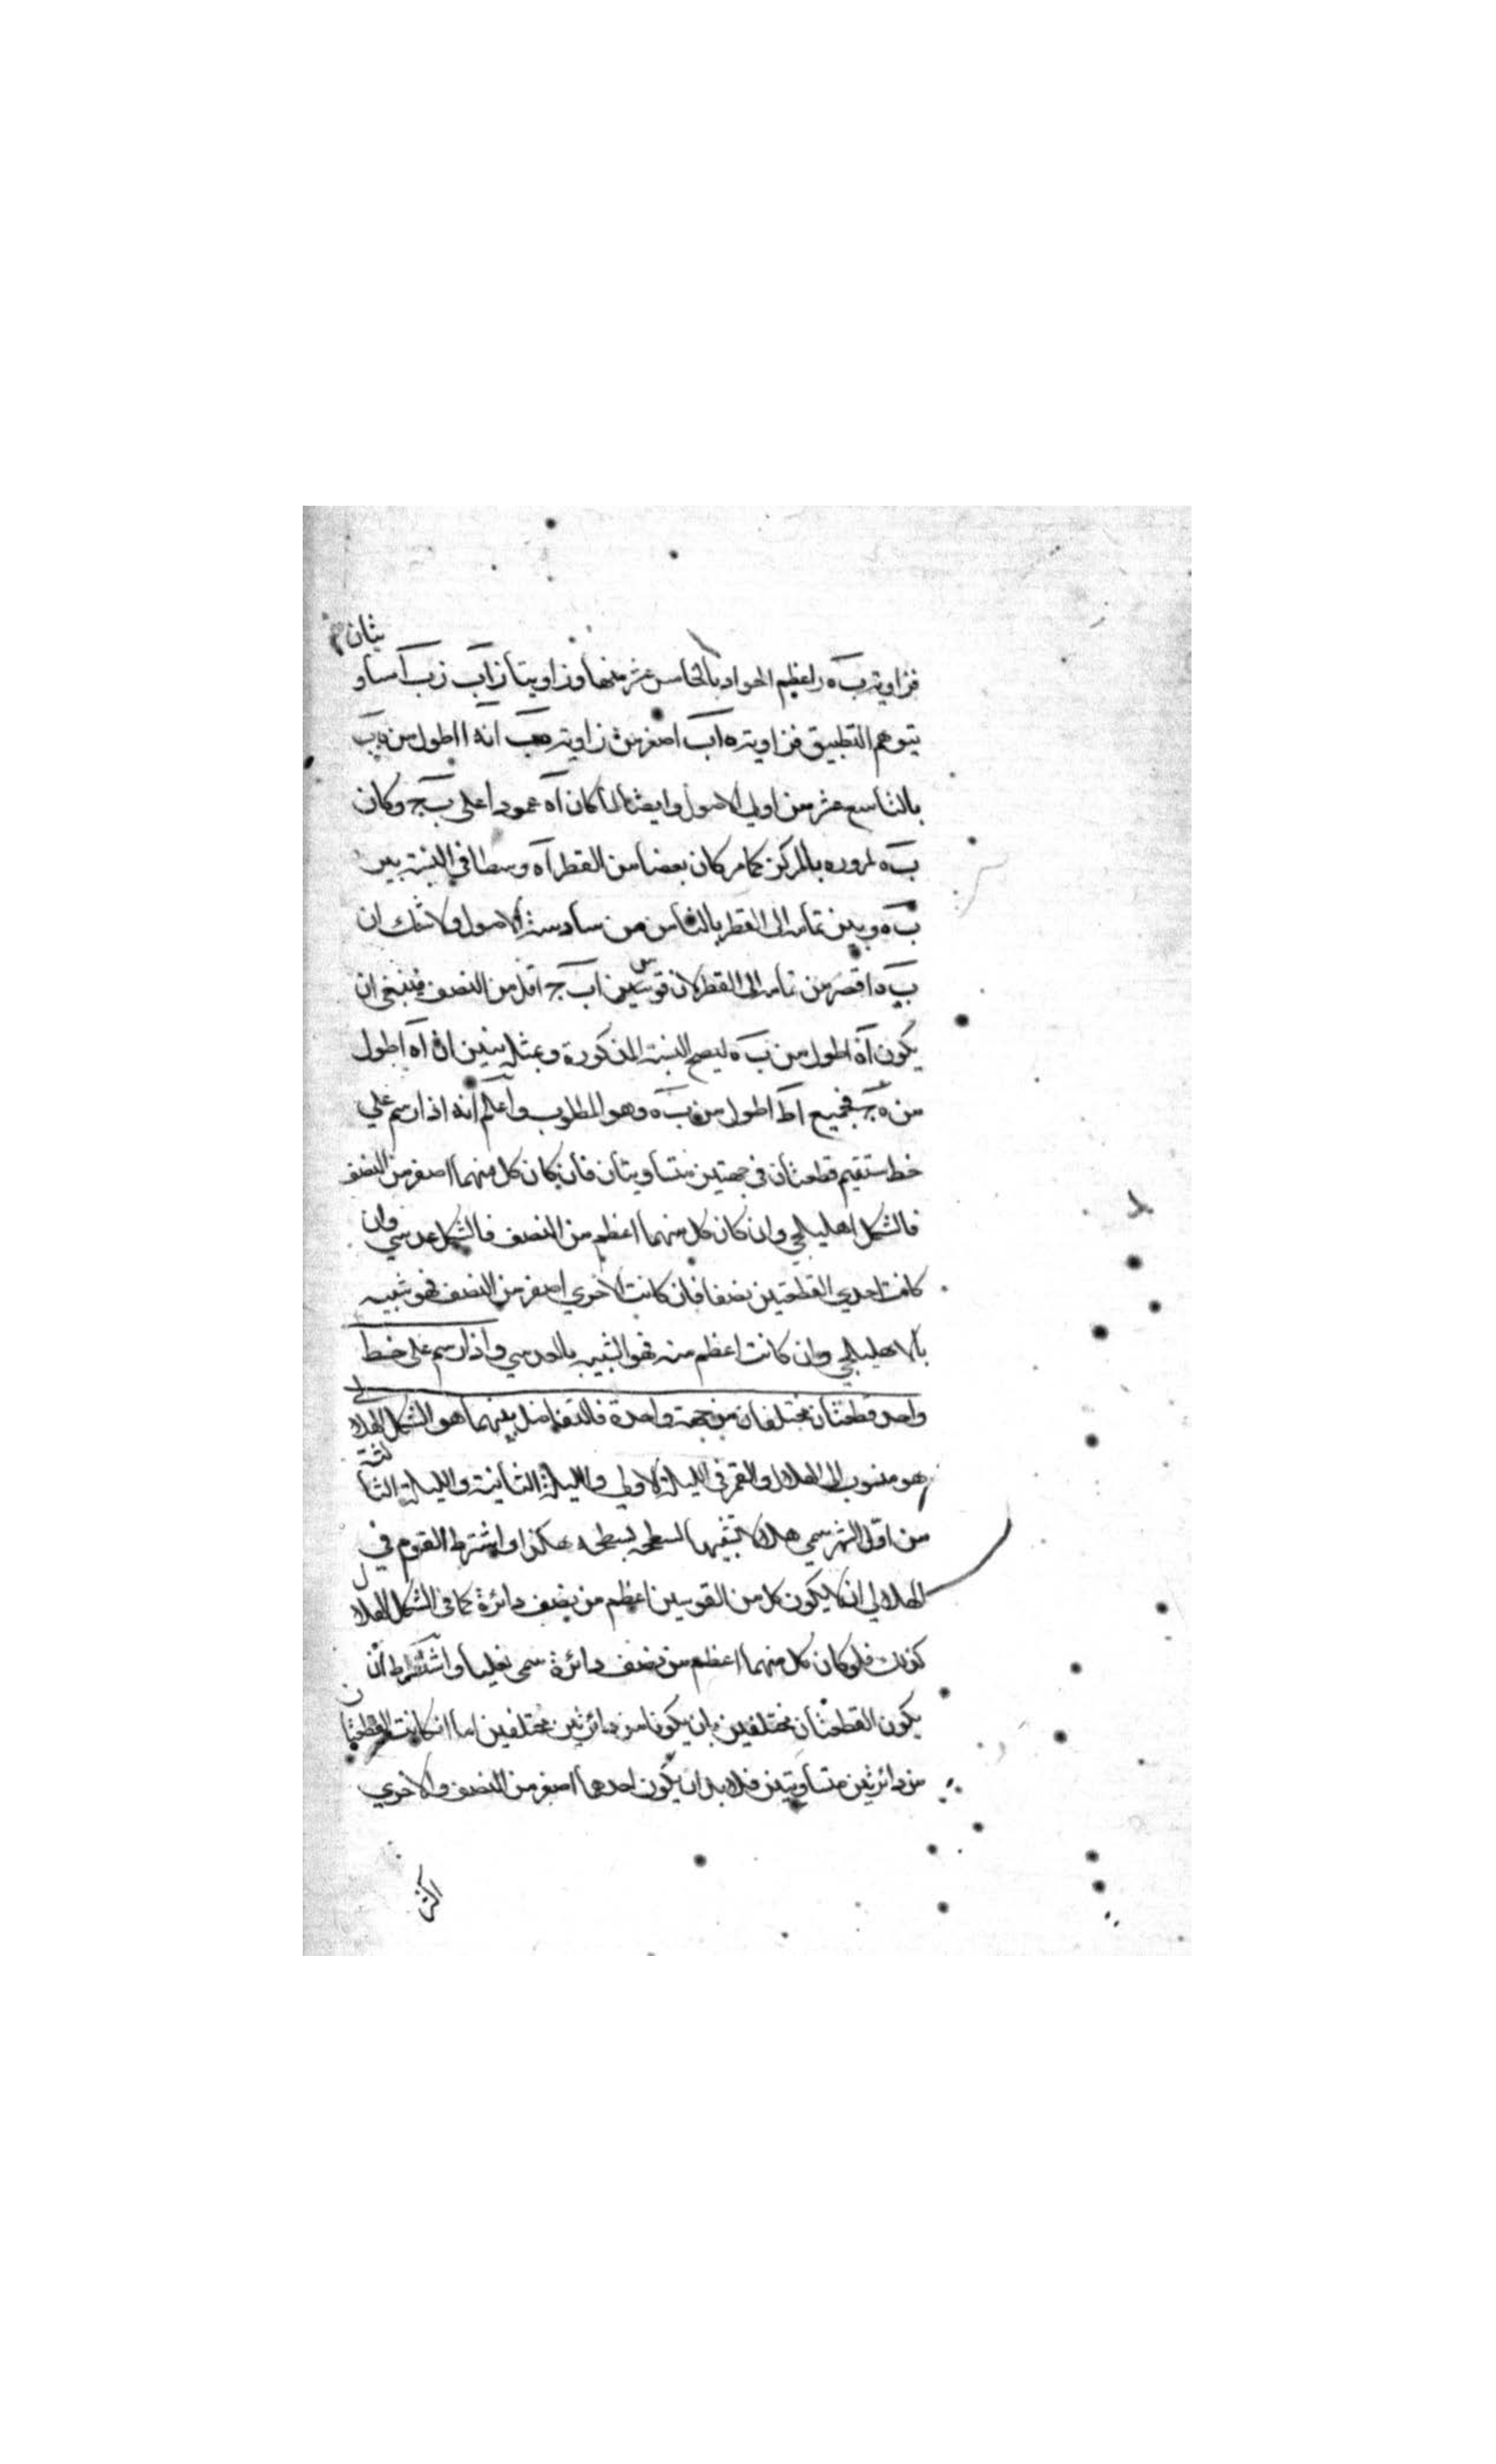 فزاوية ب ه ر اعظم الحواد بالخامس عشر منها وزاويتا ز آب ز ب آ متساويتان
بتوهم التطبيق فزاوية ه آب اصغر من زاوية ه ب آ فه ا اطول من ه ب
بالتاسع عشر من اولي الاصول وايضا لما كان آه عمودا علي ب ج وكان
ب ه لمروره بالمركز كما مر كان بعضا من القطر آه وسطا في النسبة بين
ب ه وبين تمامه الي القطر بالثامن من سادسة الاصول ولا شك ان
ب ه اقصر من تمامه الي القطر لان قوسين اب ج اقل من النصف فينبغي ان
يكون آه اطول من ب ه ليصح النسبة المذكورة وبمثله يتبين ان آه اطول
من ه ج فجميع اط اطول من ب ه وهو المطلوب واعلم انه اذا رسم علي
خط مستقيم قطعتان في جهتين متساويتان فان كان كل منهما اصغر من النصف
فالشكل اهليلجي وان كان كل منهما اعظم من النصف فالشكل عدسي وان
كانت احدي القطعتين نصفا فان كانت الاخري اصغر من النصف فهو شبيه
بالاهليلجي وان كانت اعظم منه فهو الشبيه بالعدسي واذا رسم علي خط
واحد قطعتان مختلفتان من جهة واحدة فالتفاضل بينهما هو الشكل الهلالي
هو منسوب الي الهلال والقمر في الليلة الاولي والليلة الثانية والليلة الثالثة
من اول الشهر سمي هلالا تشبيها لسطحه بسطحه هكذا واشترط القوم في
الهلالي ان لا يكون كل من القوسين اعظم من نصف دائرة كما في الشكل الهلال
كذلك فلو كان كل منهما اعظم من نصف دائرة سمي نعليا واشترط ان
يكون القطعتان مختلفتين بان يكونا من دائرتين مختلفتين اما ان كانت القطعتان
من دائرتين متساويتين فلا بد ان يكون احدها اصغر من النصف والاخري
اكثر